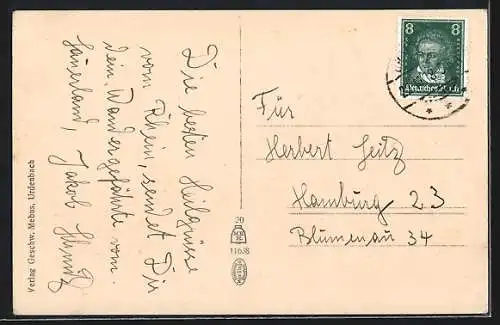 Die besten Heilgrüsse
vom Rhein, sendet Dir
dein Wandergefährte vom
Sauerland, Jakob
Verlag Geschw. Mebus, Urdenbach
20
11638
8 8
Für
Herbert Seitz
Hamburg 23
Blumenau 34